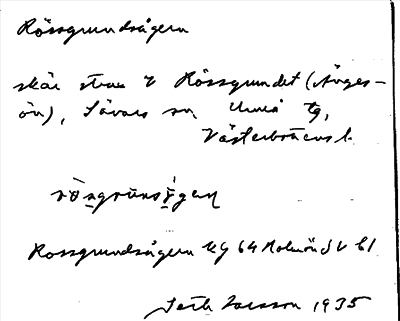 Rössgrundsågern
skär strax V Rössgrundet (Ånges-
ön), Sävars sn Umeå tg,
Västerbottens l.
Rossgrundsågern kg 64 Holmön S V bl
Seth Larsson 1935